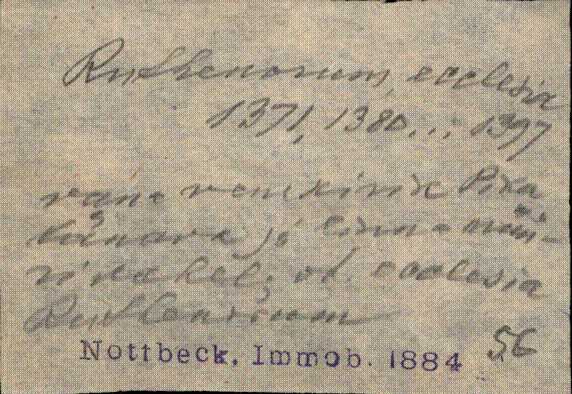 Ruthenorum, ecclesia
1371, 1380... 1397
vana vene kirik Pika
tänava ja linna müü-
ri vahel; vt. ecclesia
Ruthenorum
Nottbeck, Immob. 1884 56